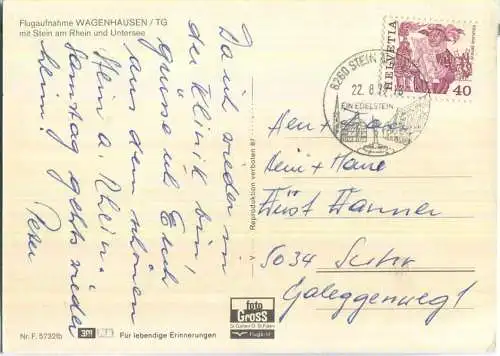 Flugaufnahme WAGENHAUSEN / TG
mit Stein am Rhein und Untersee
Da ich wieder in
der Klinik bin,
grüsse ich Euch
aus dem schönen
Stein a. Rhein.
Samstag gehts wieder
heim!
Peter
Nr. F. 5732fb
Für lebendige Erinnerungen
Reproduktion verboten
foto
GROSS
Flugbild
8260 STEIN
22. 8.
EIN EDELSTEIN
HELVETIA
40
Herr + Frau
Wanner
5034 Suhr
Galeggenweg 1